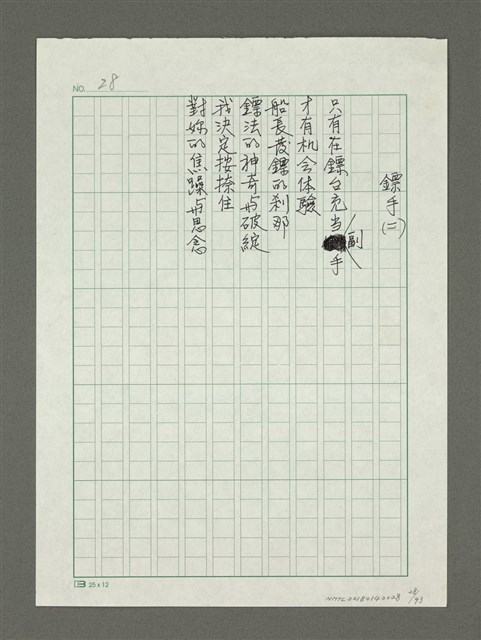 NO. 28
鏢手(二)
只有在鏢台充当副手
才有机会体驗
船長發鏢的剎那
鏢法的神奇与破綻
我決定按捺住
對妳的焦躁与思念
25 x 12
NMTL20180140028
28/93